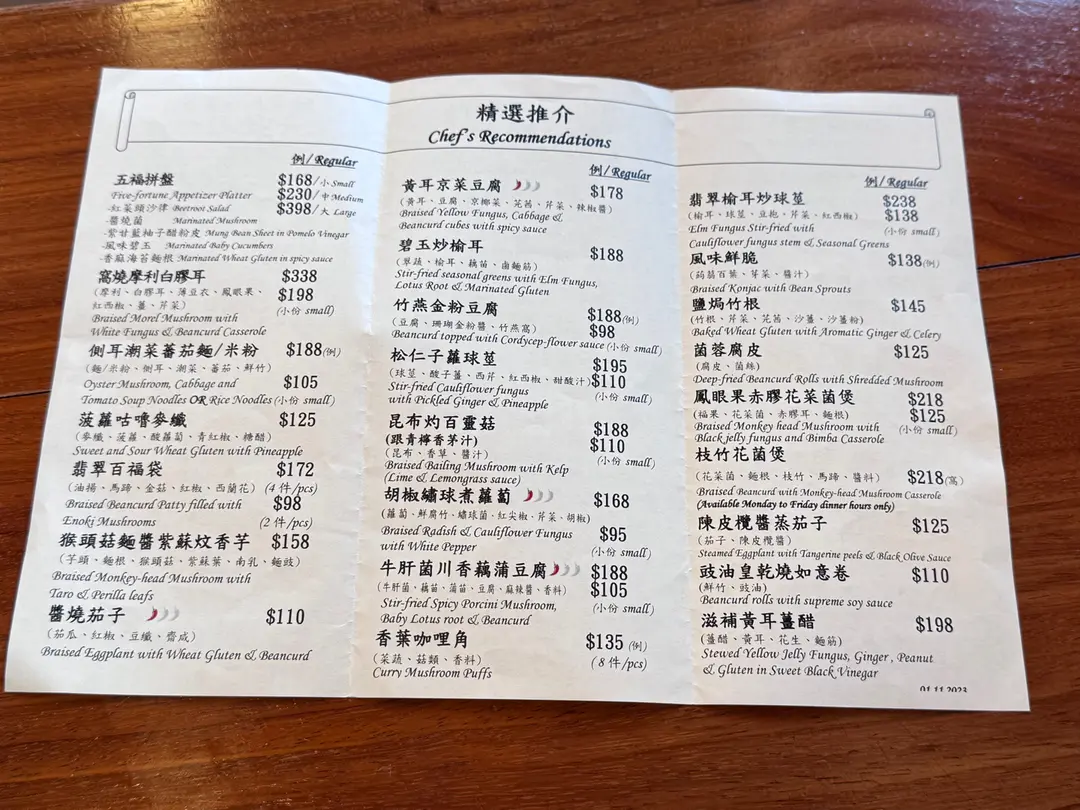 精選推介
Chef's Recommendations
例/Regular
五福拼盤 $168/小 Small
Five-fortune Appetizer Platter $230/中 Medium
-紅菜頭沙律 Beetroot Salad $398/大 Large
-醬燒菌 Marinated Mushroom
-紫甘藍柚子醋粉皮 Mung Bean Sheet in Pomelo Vinegar
-風味碧玉 Marinated Baby Cucumbers
-香麻海苔麵根 Marinated Wheat Gluten in spicy sauce
窩燒摩利白膠耳 $338
(摩利、白膠耳、薄豆衣、鳳眼果、 $198
紅西椒、薑、芹菜) (小份 small)
Braised Morel Mushroom with
White Fungus & Beancurd Casserole
側耳潮菜蕃茄麵/米粉 $188(例)
(麵/米粉、側耳、潮菜、蕃茄、鮮竹)
Oyster Mushroom, Cabbage and $105
Tomato Soup Noodles OR Rice Noodles (小份 small)
菠蘿咕嚕麥纖 $125
(麥纖、菠蘿、酸蘿蔔、青紅椒、糖醋)
Sweet and Sour Wheat Gluten with Pineapple
翡翠百福袋 $172
(油揚、馬蹄、金菇、紅椒、西蘭花) (4 件/pcs)
Braised Beancurd Patty filled with $98
Enoki Mushrooms (2 件/pcs)
猴頭菇麵醬紫蘇炆香芋 $158
(芋頭、麵根、猴頭菇、紫蘇葉、南乳、麵豉)
Braised Monkey-head Mushroom with
Taro & Perilla leafs
醬燒茄子 $110
(茄瓜、紅椒、豆纖、齋咸)
Braised Eggplant with Wheat Gluten & Beancurd
例/Regular
黃耳京菜豆腐 $178
(黃耳、豆腐、京椰菜、芫茜、芹菜、辣椒醬)
Braised Yellow Fungus, Cabbage &
Beancurd cubes with spicy sauce
碧玉炒榆耳 $188
(翠蔬、榆耳、藕苗、鹵麵筋)
Stir-fried seasonal greens with Elm Fungus,
Lotus Root & Marinated Gluten
竹燕金粉豆腐 $188(例)
(豆腐、珊瑚金粉醬、竹燕窩) $98
Beancurd topped with Cordycep-flower sauce (小份 small)
松仁子蘿球莖 $195
(球莖、酸子薑、西芹、紅西椒、甜酸汁) $110
Stir-fried Cauliflower fungus (小份 small)
with Pickled Ginger & Pineapple
昆布灼百靈菇 $188
(跟青檸香茅汁) $110
(昆布、香草、醬汁) (小份 small)
Braised Bailing Mushroom with Kelp
(Lime & Lemongrass sauce)
胡椒繡球煮蘿蔔 $168
(蘿蔔、鮮腐竹、繡球菌、紅尖椒、芹菜、胡椒)
Braised Radish & Cauliflower Fungus $95
with White Pepper (小份 small)
牛肝菌川香藕蒲豆腐 $188
(牛肝菌、藕苗、蒲苗、豆腐、麻辣醬、香料) $105
Stir-fried Spicy Porcini Mushroom, (小份 small)
Baby Lotus root & Beancurd
香葉咖哩角 $135 (例)
(菜蔬、菇類、香料) (8 件/pcs)
Curry Mushroom Puffs
例/Regular
翡翠榆耳炒球莖 $238
(榆耳、球莖、豆抱、芹菜、紅西椒) $138
Elm Fungus Stir-fried with (小份 small)
Cauliflower fungus stem & Seasonal Greens
風味鮮脆 $138(例)
(蒟蒻百葉、芽菜、醬汁)
Braised Konjac with Bean Sprouts
鹽焗竹根 $145
(竹根、芹菜、芫茜、沙薑、沙薑粉)
Baked Wheat Gluten with Aromatic Ginger & Celery
菌蓉腐皮 $125
(腐皮、菌絲)
Deep-fried Beancurd Rolls with Shredded Mushroom
鳳眼果赤膠花菜菌煲 $218
(福果、花菜菌、赤膠耳、麵根) $125
Braised Monkey head Mushroom with (小份 small)
Black jelly fungus and Bimba Casserole
枝竹花菌煲
(花菜菌、麵根、枝竹、馬蹄、醬料) $218(窩)
Braised Beancurd with Monkey-head Mushroom Casserole
(Available Monday to Friday dinner hours only)
陳皮欖醬蒸茄子 $125
(茄子、陳皮欖醬)
Steamed Eggplant with Tangerine peels & Black Olive Sauce
豉油皇乾燒如意卷 $110
(鮮竹、豉油)
Beancurd rolls with supreme soy sauce
滋補黃耳薑醋 $198
(薑醋、黃耳、花生、麵筋)
Stewed Yellow Jelly Fungus, Ginger, Peanut
& Gluten in Sweet Black Vinegar
01.11.2023